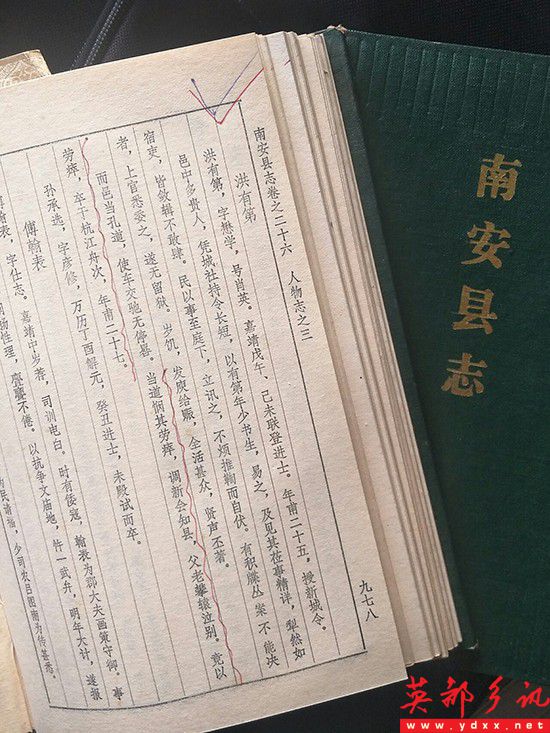 南安县志卷之二十六 人物志之三
九七八
洪有第
洪有第，字懋学，号肖英。嘉靖戊午、己未联登进士。年甫二十五，授新城令。
邑中多贵人，凭城社持令长短，以有第年少书生，易之，及见其莅事精详，犁然如
民以事至庭下，立讯之，不烦推鞫而自伏。有积牒丛案不能决
宿吏，皆敛辑不敢肆。
者，上官悉委之，遂无留狱。岁饥，发廪给赈，全活甚众，贤声丕著。
而邑当孔道，使车交驰无停晷。当道悯其劳瘁，调新会知县，父老攀辕泣别。竟以
劳瘁，卒于杭江舟次，年甫二十七。
孙承选，字彦修，万历丁酉解元，癸丑进士，未殿试而卒。
傅翰表
字仕志。嘉靖中岁荐，司训电白。时有倭寇，翰表为郡大夫画策守御。事
性理，亹亹不倦。以抗争文庙地，忤一武弁，明年大计，遂报
为民请福，少司农吕图南为传甚悉。
南安县志
英都乡讯
www.ydxx.net